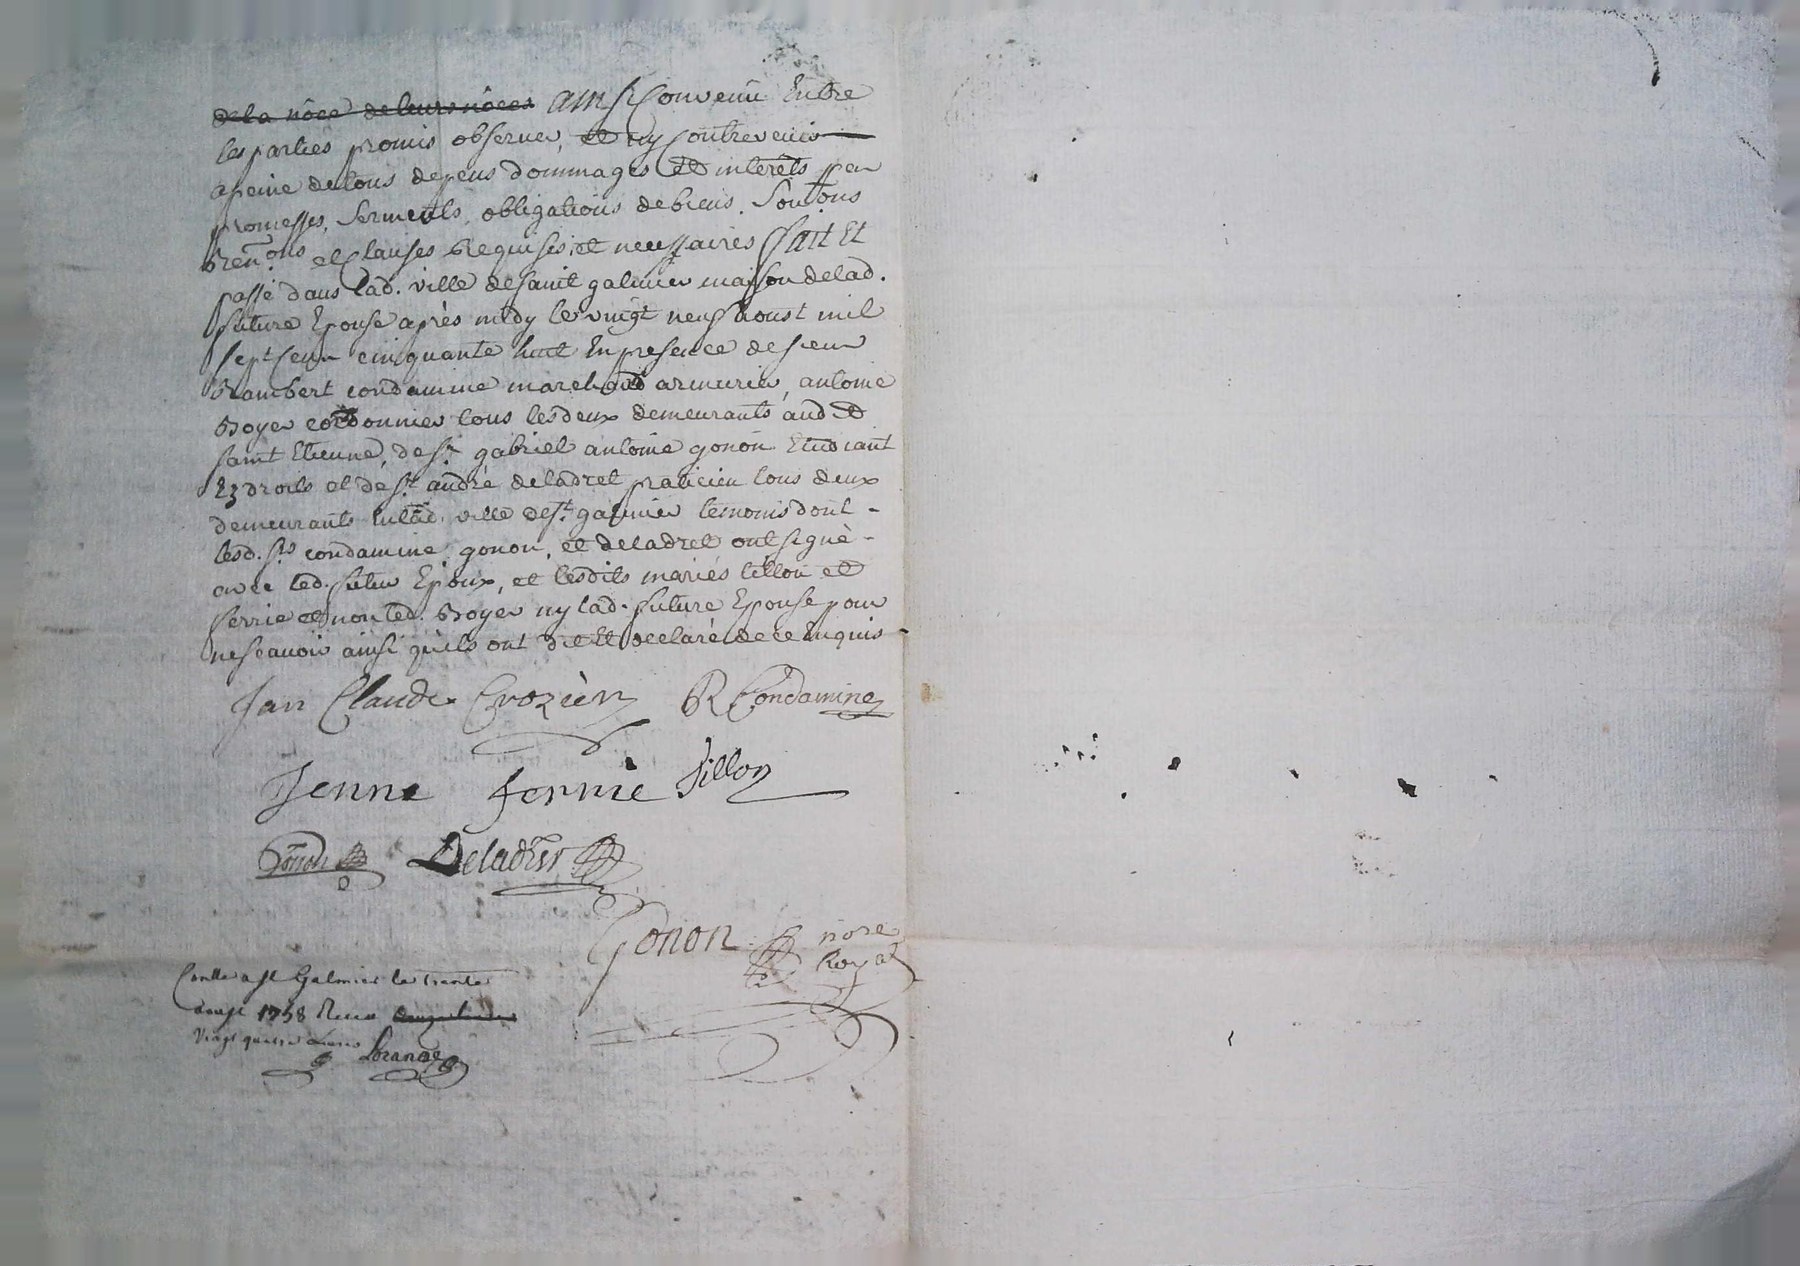 de la nôce de leurs nôces ainsy Convenu Entre
les parties promis observer, et ny Contrevenir
a peine de tous depens dommages et interets par
promesses, serments, obligations de biens. Soub.ons
Ren.ons et Clauses Requises, et necessaires fait Et
passé dans lad. ville de saint galmier maison de lad.
future Epouse après midy le vingt neuf aoust mil
sept cent cinquante huit En presence de sieur
Rambert condamine marchand armurier, antoine
Boyer cordonnier tous les deux demeurants aud
saint Etienne, de sr. gabriel antoine gonon Etudiant
Ez droits et de sr. andré deladret praticien tous deux
demeurants En lad. ville de st. galmier temoins dont
lesd. srs condamine, gonon, et deladret ont signé
avec led. futur Epoux, et lesdits mariés tillon et
ferrie et non led. Boyer ny lad. future Epouse pour
ne scavoir ainsi qu'ils ont dit Et declaré de ce Enquis
Jan Claude Crozier R Condamine
Jenne ferrie tillon
Gonon Deladret
Gonon nore
Royal
Conlle a st Galmier le trente
aoust 1758 Recu
Vingt quatre